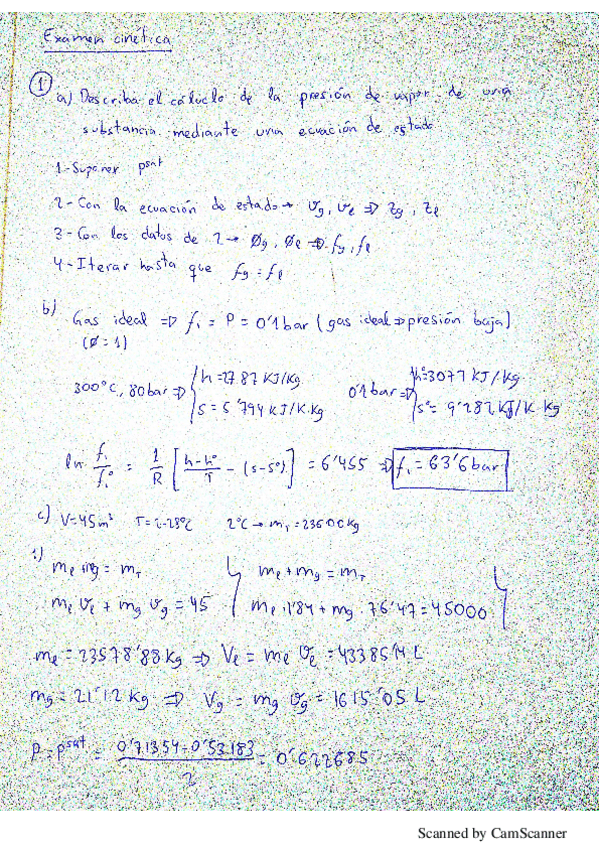 Examen cinetica
1
a) Describa el cálculo de la presión de vapor de una
substancia mediante una ecuación de estado
1-Suponer Psat
2-Con la ecuación de estado → vg, vl => Zg, Zl
3-Con los datos de 2 → Øg, Øl => fg, fl
4-Iterar hasta que fg = fl
b) Gas ideal => fi = P = 0'1 bar (gas ideal => presión baja)
(Ø = 1)
300°C, 80bar => h = 2787 KJ/Kg 0'1 bar => h° = 3077 KJ/Kg
s = 5'794 KJ/K·Kg s° = 9'282 KJ/K·Kg
ln fi/fi° = 1/R [ (h-h°)/T - (s-s°) ] = 6'455 => fi = 63'6 bar
c) V = 45 m³ 2°C → mT = 23600 Kg
1)
ml + mg = mT ml + mg = mT
ml vl + mg vg = 45 ml · 1'84 + mg · 76'47 = 45000
ml = 23578'88 Kg => Vl = ml vl = 43385'14 L
mg = 21'12 Kg => Vg = mg vg = 1615'05 L
P = Psat = (0'71354 + 0'53183)/2 = 0'622685
Scanned by CamScanner